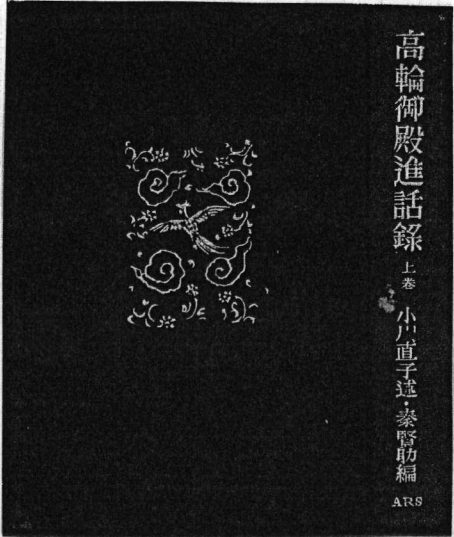 高輪御殿進話錄 上巻 小川直子述・秦賢助編 ARS